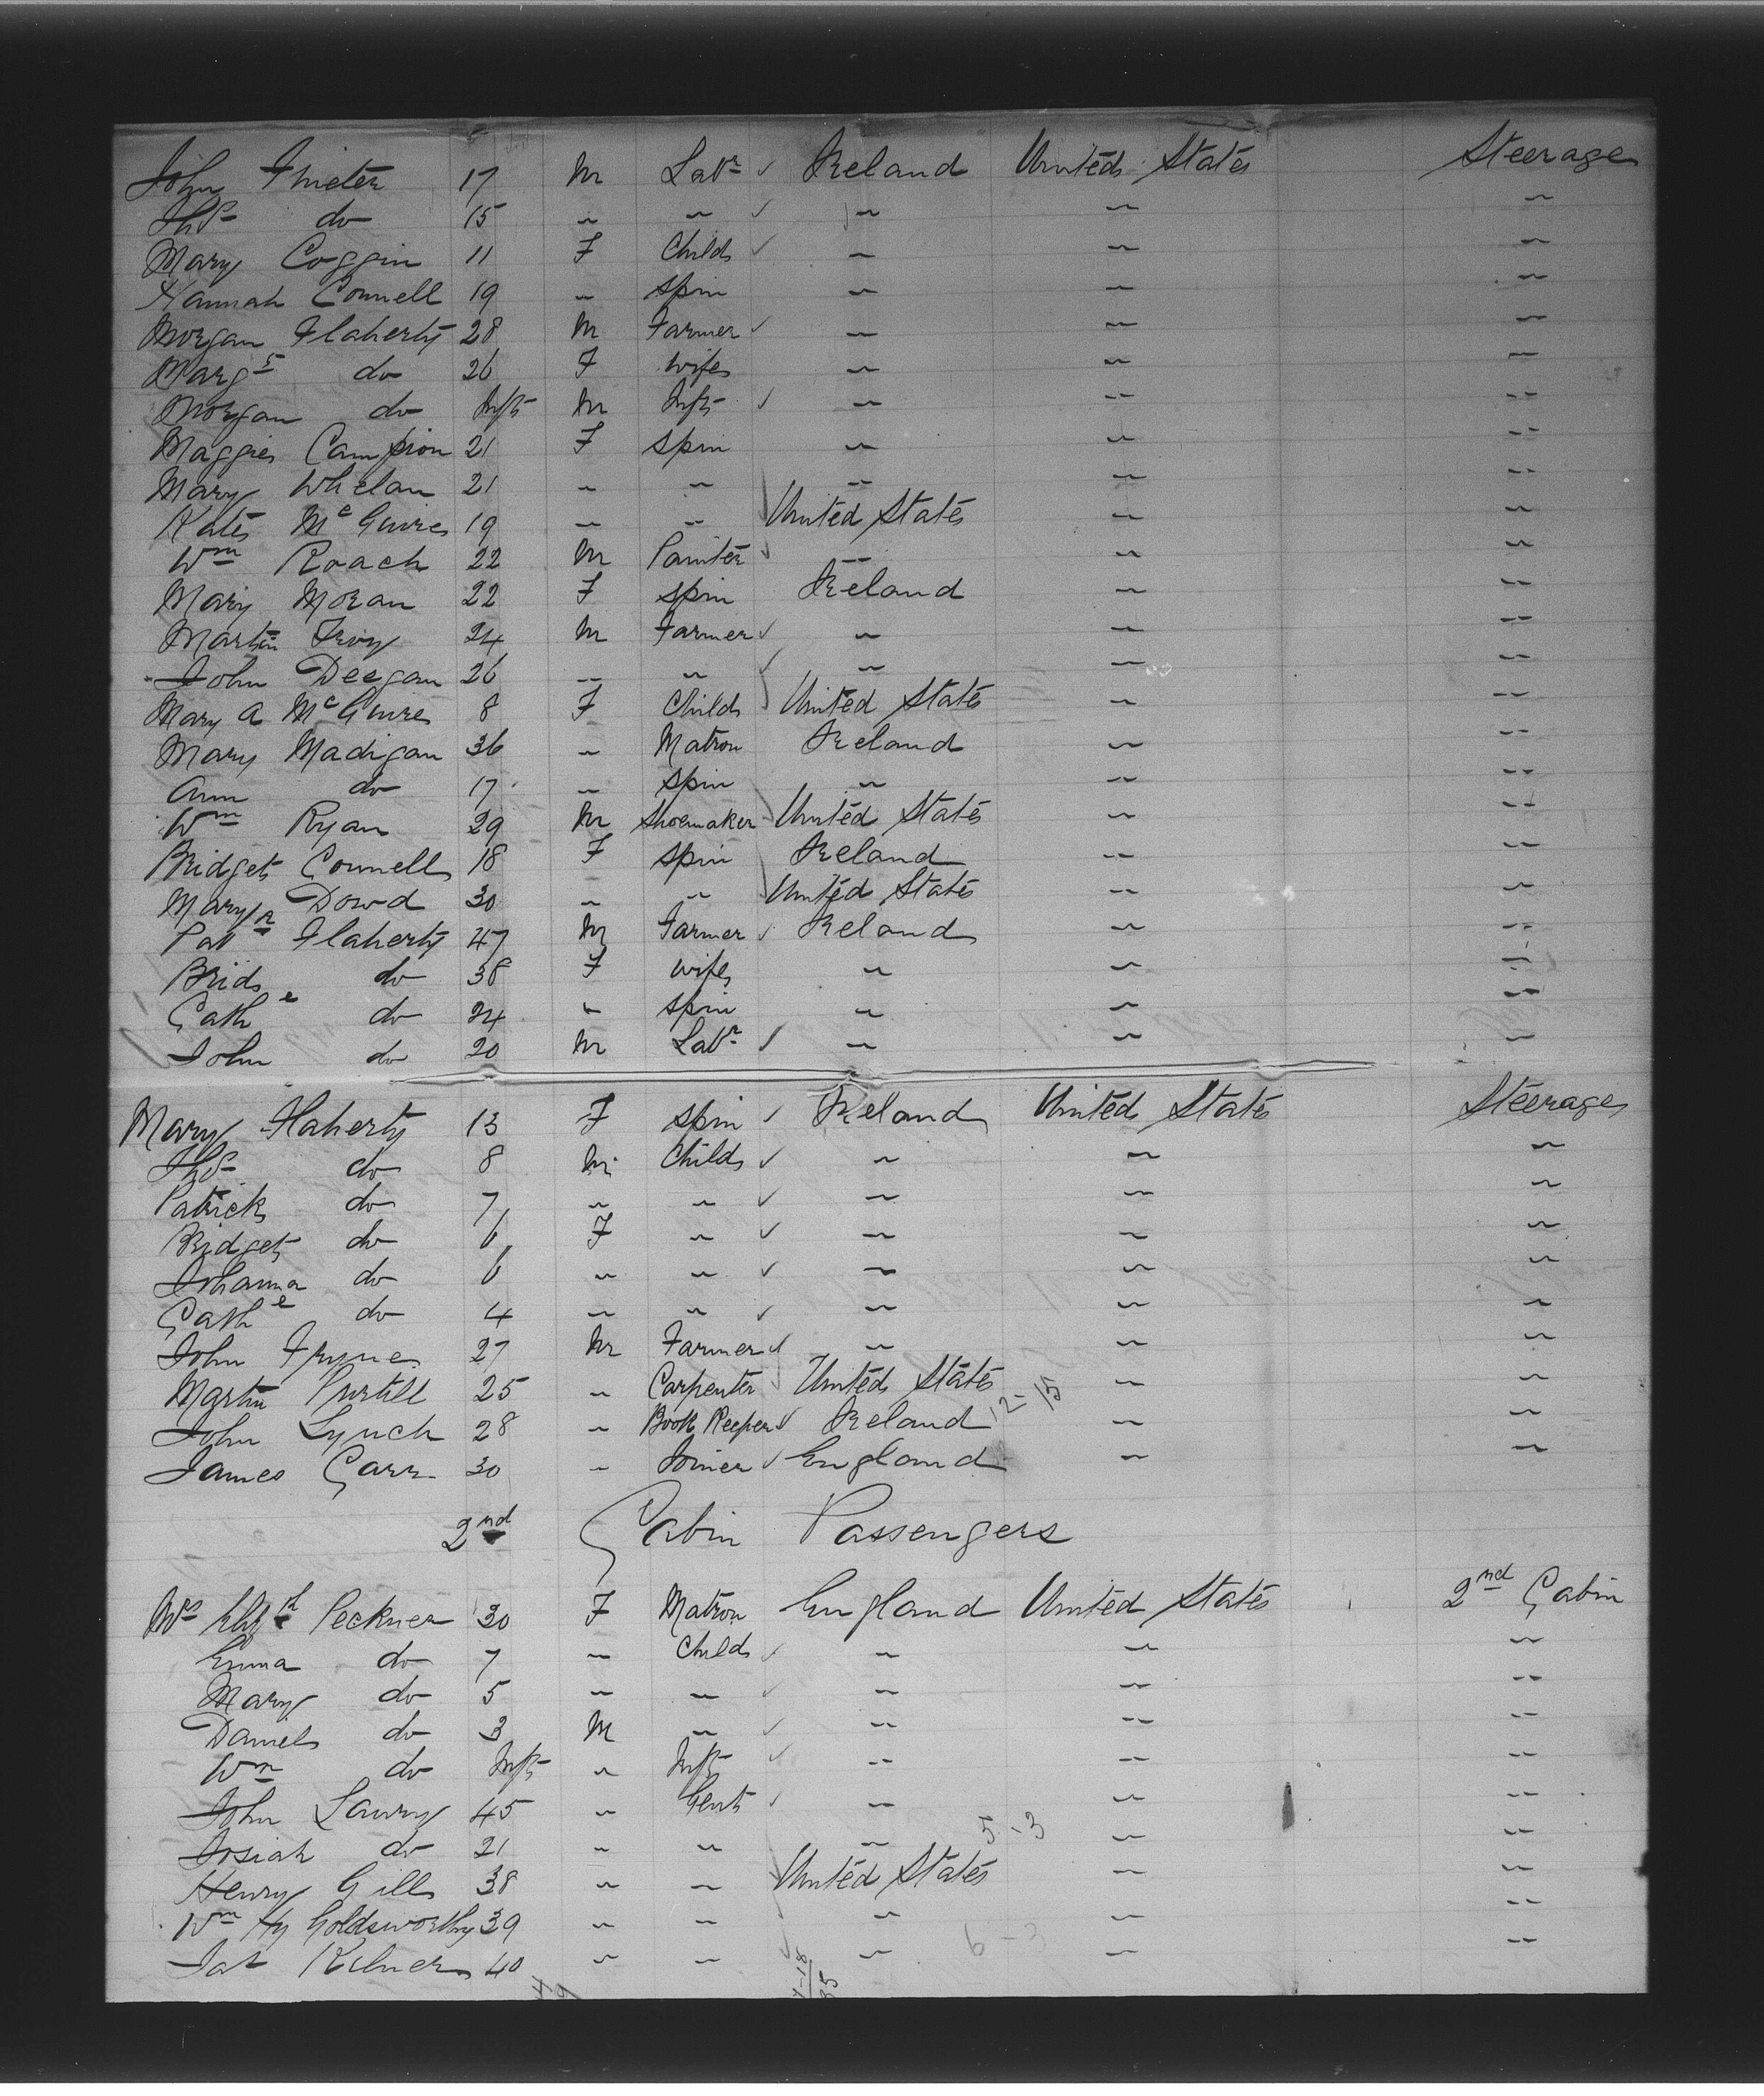 John 17 M Labr ✓ Ireland United States Steerage
Thos do 15 " " ✓ " " "
Mary Coggin 11 F Child ✓ " " "
Hannah Connell 19 " spin " " "
Morgan Flaherty 28 M Farmer ✓ " " "
Margt do 26 F wife " " "
Morgan do Inft M Inft ✓ " " "
Maggie Campion 21 F spin " " "
Mary Whelan 21 " " " " "
Kate McGuire 19 " " United States " "
Wm Roach 22 M Painter ✓ " " "
Mary Moran 22 F spin Ireland " "
Martin 24 M Farmer ✓ " " "
John Deegan 26 " " ✓ " " "
Mary A McGuire 8 F Child United States " "
Mary Madigan 36 " Matron Ireland " "
Ann do 17 " spin " " "
Wm Ryan 29 M Shoemaker United States " "
Bridget Connell 18 F spin Ireland " "
Mary Dowd 30 " " United States " "
Patk Flaherty 47 M Farmer ✓ Ireland " "
Brid do 38 F wife " " "
Cathe do 24 " spin " " "
John do 20 M Labr ✓ " " "
Mary Flaherty 13 F spin ✓ Ireland United States Steerage
Thos do 8 M Child ✓ " " "
Patrick do 7 " " ✓ " " "
Bridget do 6 F " ✓ " " "
Johanna do 6 " " ✓ " " "
Cathe do 4 " " ✓ " " "
John Fryne 27 M Farmer ✓ " " "
Martin Purtill 25 " Carpenter ✓ United States " "
John Lynch 28 " Book Keeper ✓ Ireland 12-15 " "
James Carr 30 " Joiner ✓ England " "
2nd Cabin Passengers
Mrs Elizth Peckner 30 F Matron England United States 2nd Cabin
Emma do 7 " Child ✓ " " "
Mary do 5 " " ✓ " " "
Daniel do 3 M " ✓ " " "
Wm do Inft " Inft ✓ " " "
John Lawry 45 " Gent ✓ " " "
Josiah do 21 " " " 5-3 " "
Henry Gill 38 " " United States " "
Wm Hy Goldsworthy 39 " " " " "
Jas Kilner 40 " " ✓ " 6-3 " "